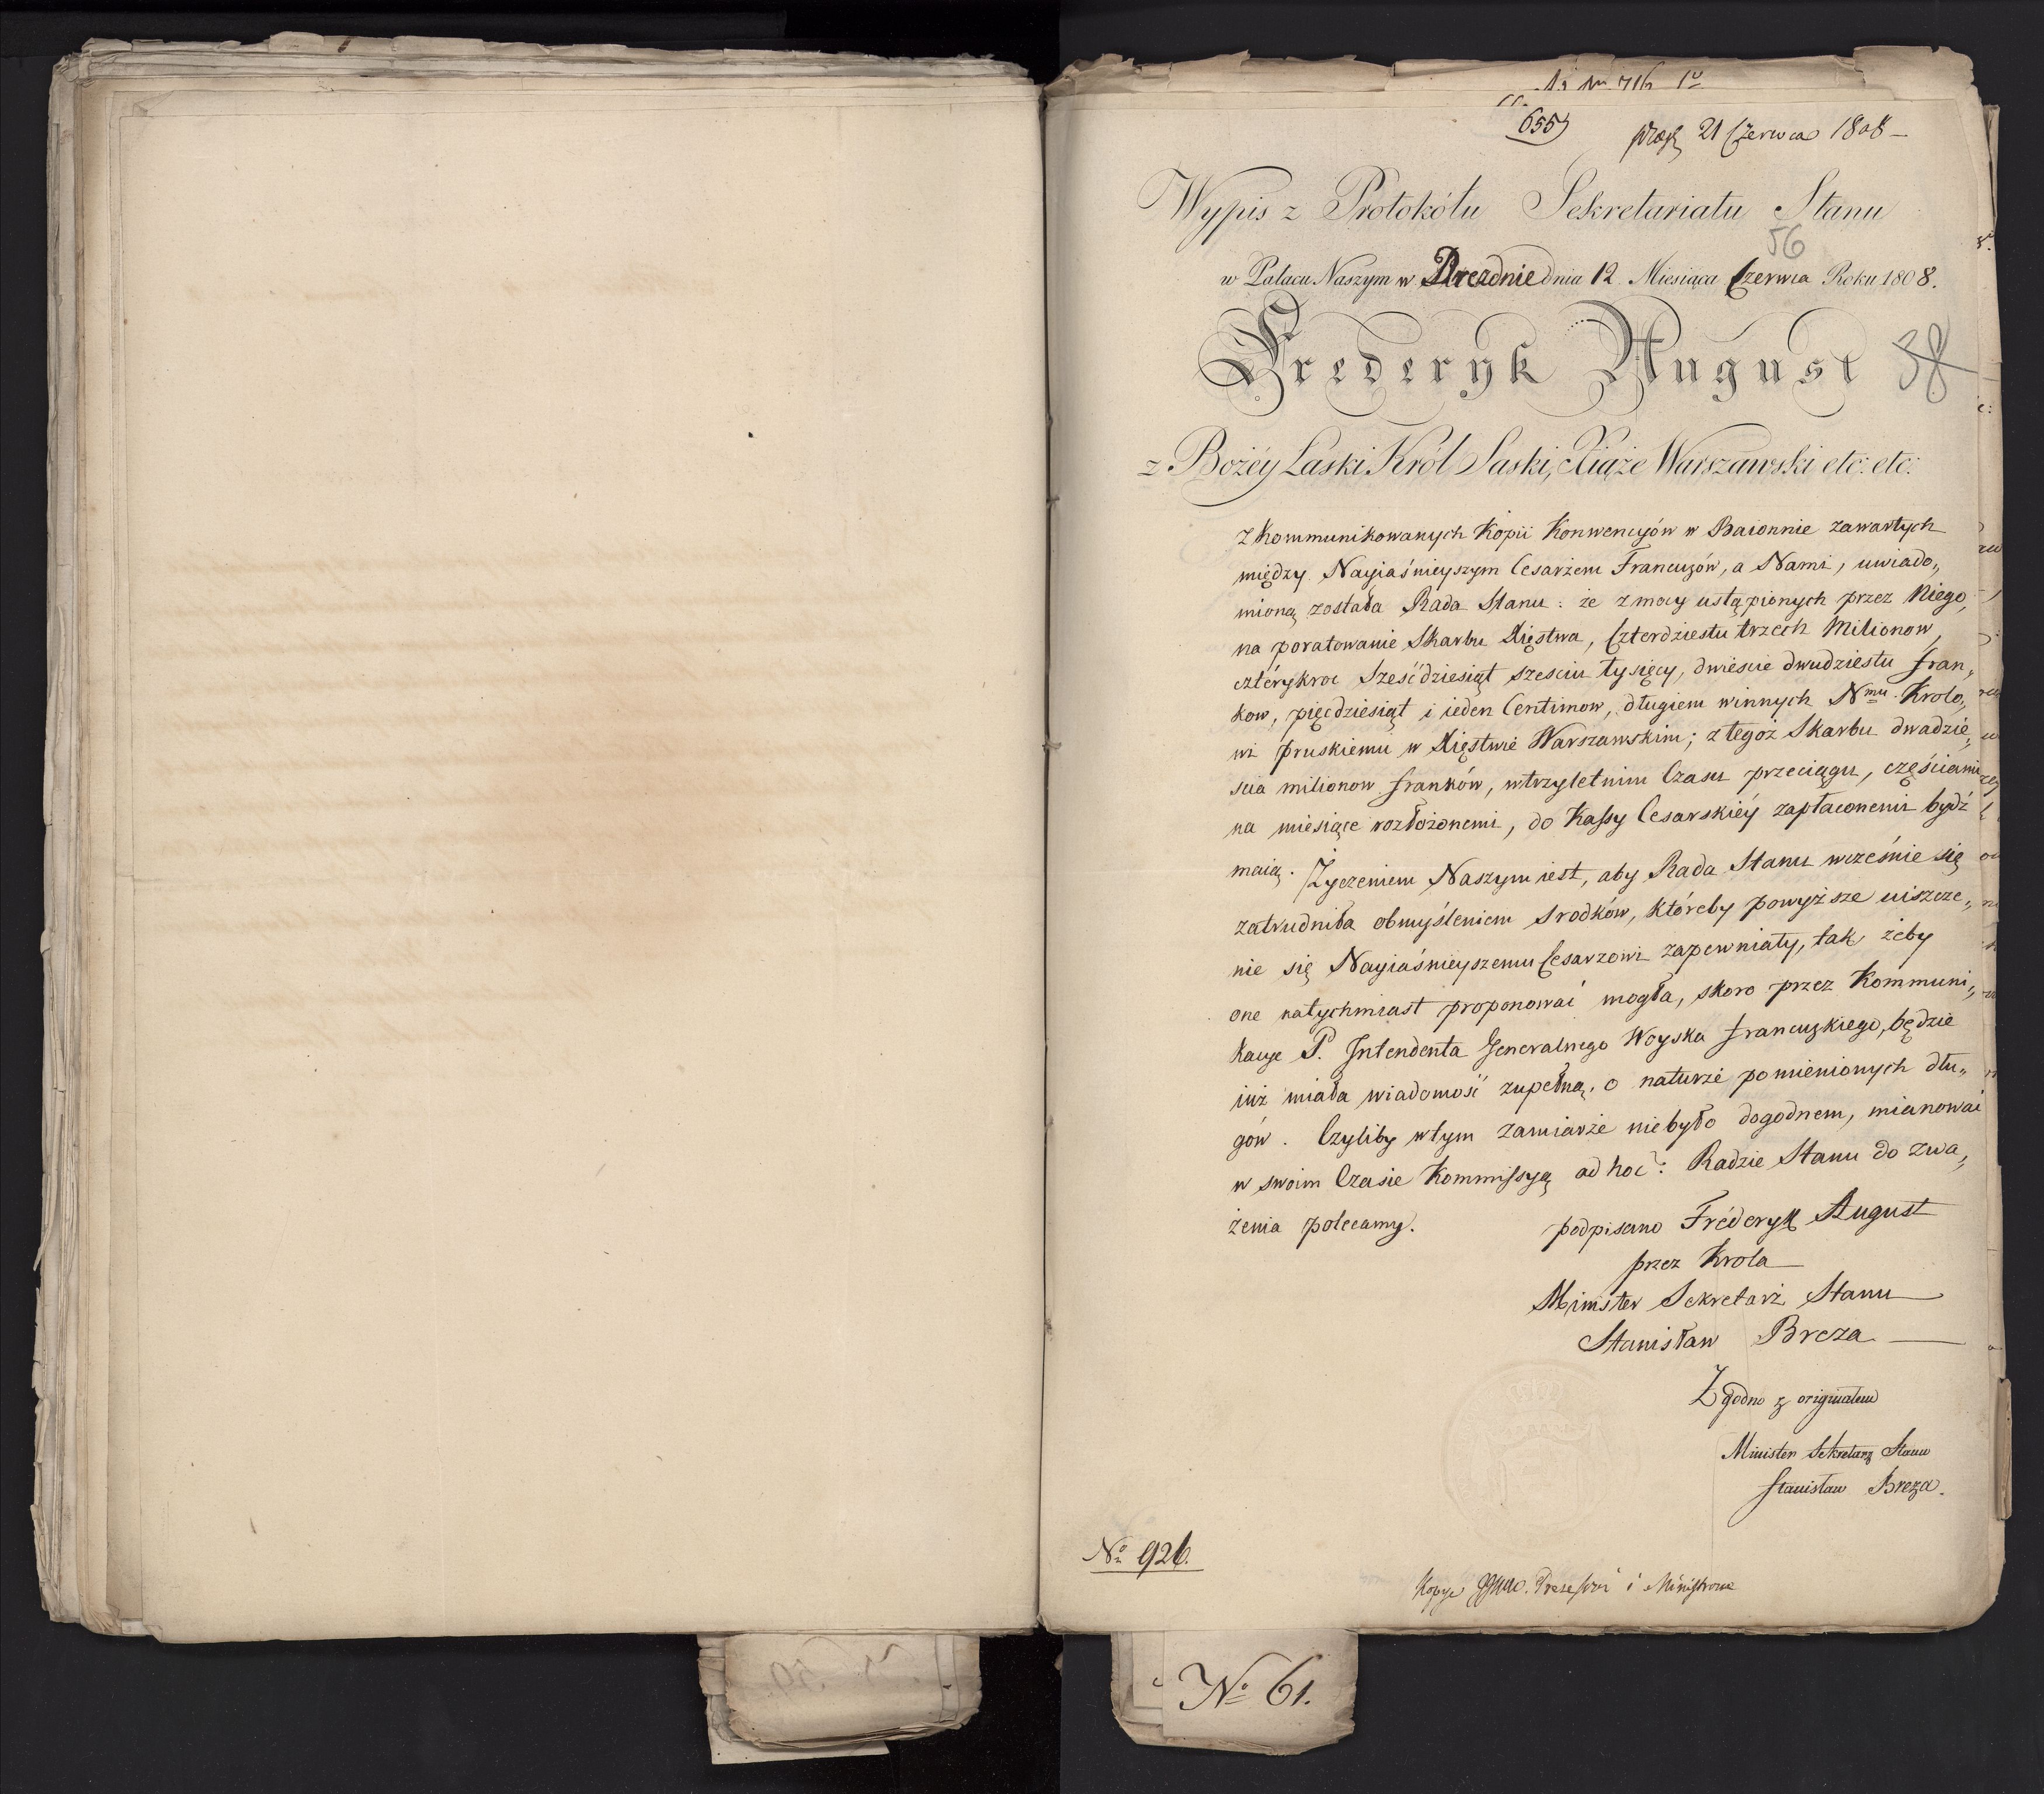 716
655
21 Czerwca 1808
Wypis z Protokółu Sekretariatu Stanu
56
w Pałacu Naszym w Dreznie dnia 12 Miesiąca Czerwca Roku 1808.
Frederyk August
38
z Bożéy Łaski Król Saski, Xiąże Warszawski etc: etc:
Z kommunikowanych Kopii Konwencyów w Baionnie zawartych
między Nayiaśnieyszym Cesarżem Francuzów, a Nami, uwiado„
mioną została Rada Stanu: że z mocy ustąpionych przez Niego,
na poratowanie Skarbu Xięstwa, Czterdziestu trzech Milionow,
cztérykroc Sześćdziesiąt szesciu tysięcy, dwieście dwudziestu fran„
kow, pięćdziesiąt i ieden Centimow, długiem winnych Nmu Krolo„
wi pruskiemu w Xięstwie Warszawskim; z tegoż Skarbu dwadzie„
scia milionow franków, w trzyletnim Czasu przeciągu, częściami
na miesiące rozłożonemi, do Kassy Cesarskiéy zapłaconemi bydź
maią. Życzeniem Naszym iest, aby Rada Stanu wcześnie się
zatrudniła obmyśleniem srodków, któreby powyższe uiszcze„
nie się Nayiaśnieyszemu Cesarzowi zapewniały, tak żeby
one natychmiast proponować mogła, skoro przez Kommuni„
kacye P. Intendenta Generalnego Woyska francuzkiego, będzie
iuż miała wiadomość zupełną, o naturże pomienionych dłu„
gów. Czyliby w tym zamiarże niebyło dogodnem, mianować
w swoim Czasie Kommissyą ad hoc: Radzie Stanu do zwa„
żenia polecamy.
podpisano Fréderyk August
przez Krola
Minister Sekretarż Stanu
Stanisław Breza
Zgodno z originałem
Minister Sekretarz Stanu
Stanisław Breza.
No 926.
Kopye i Ministrowi
No 61.